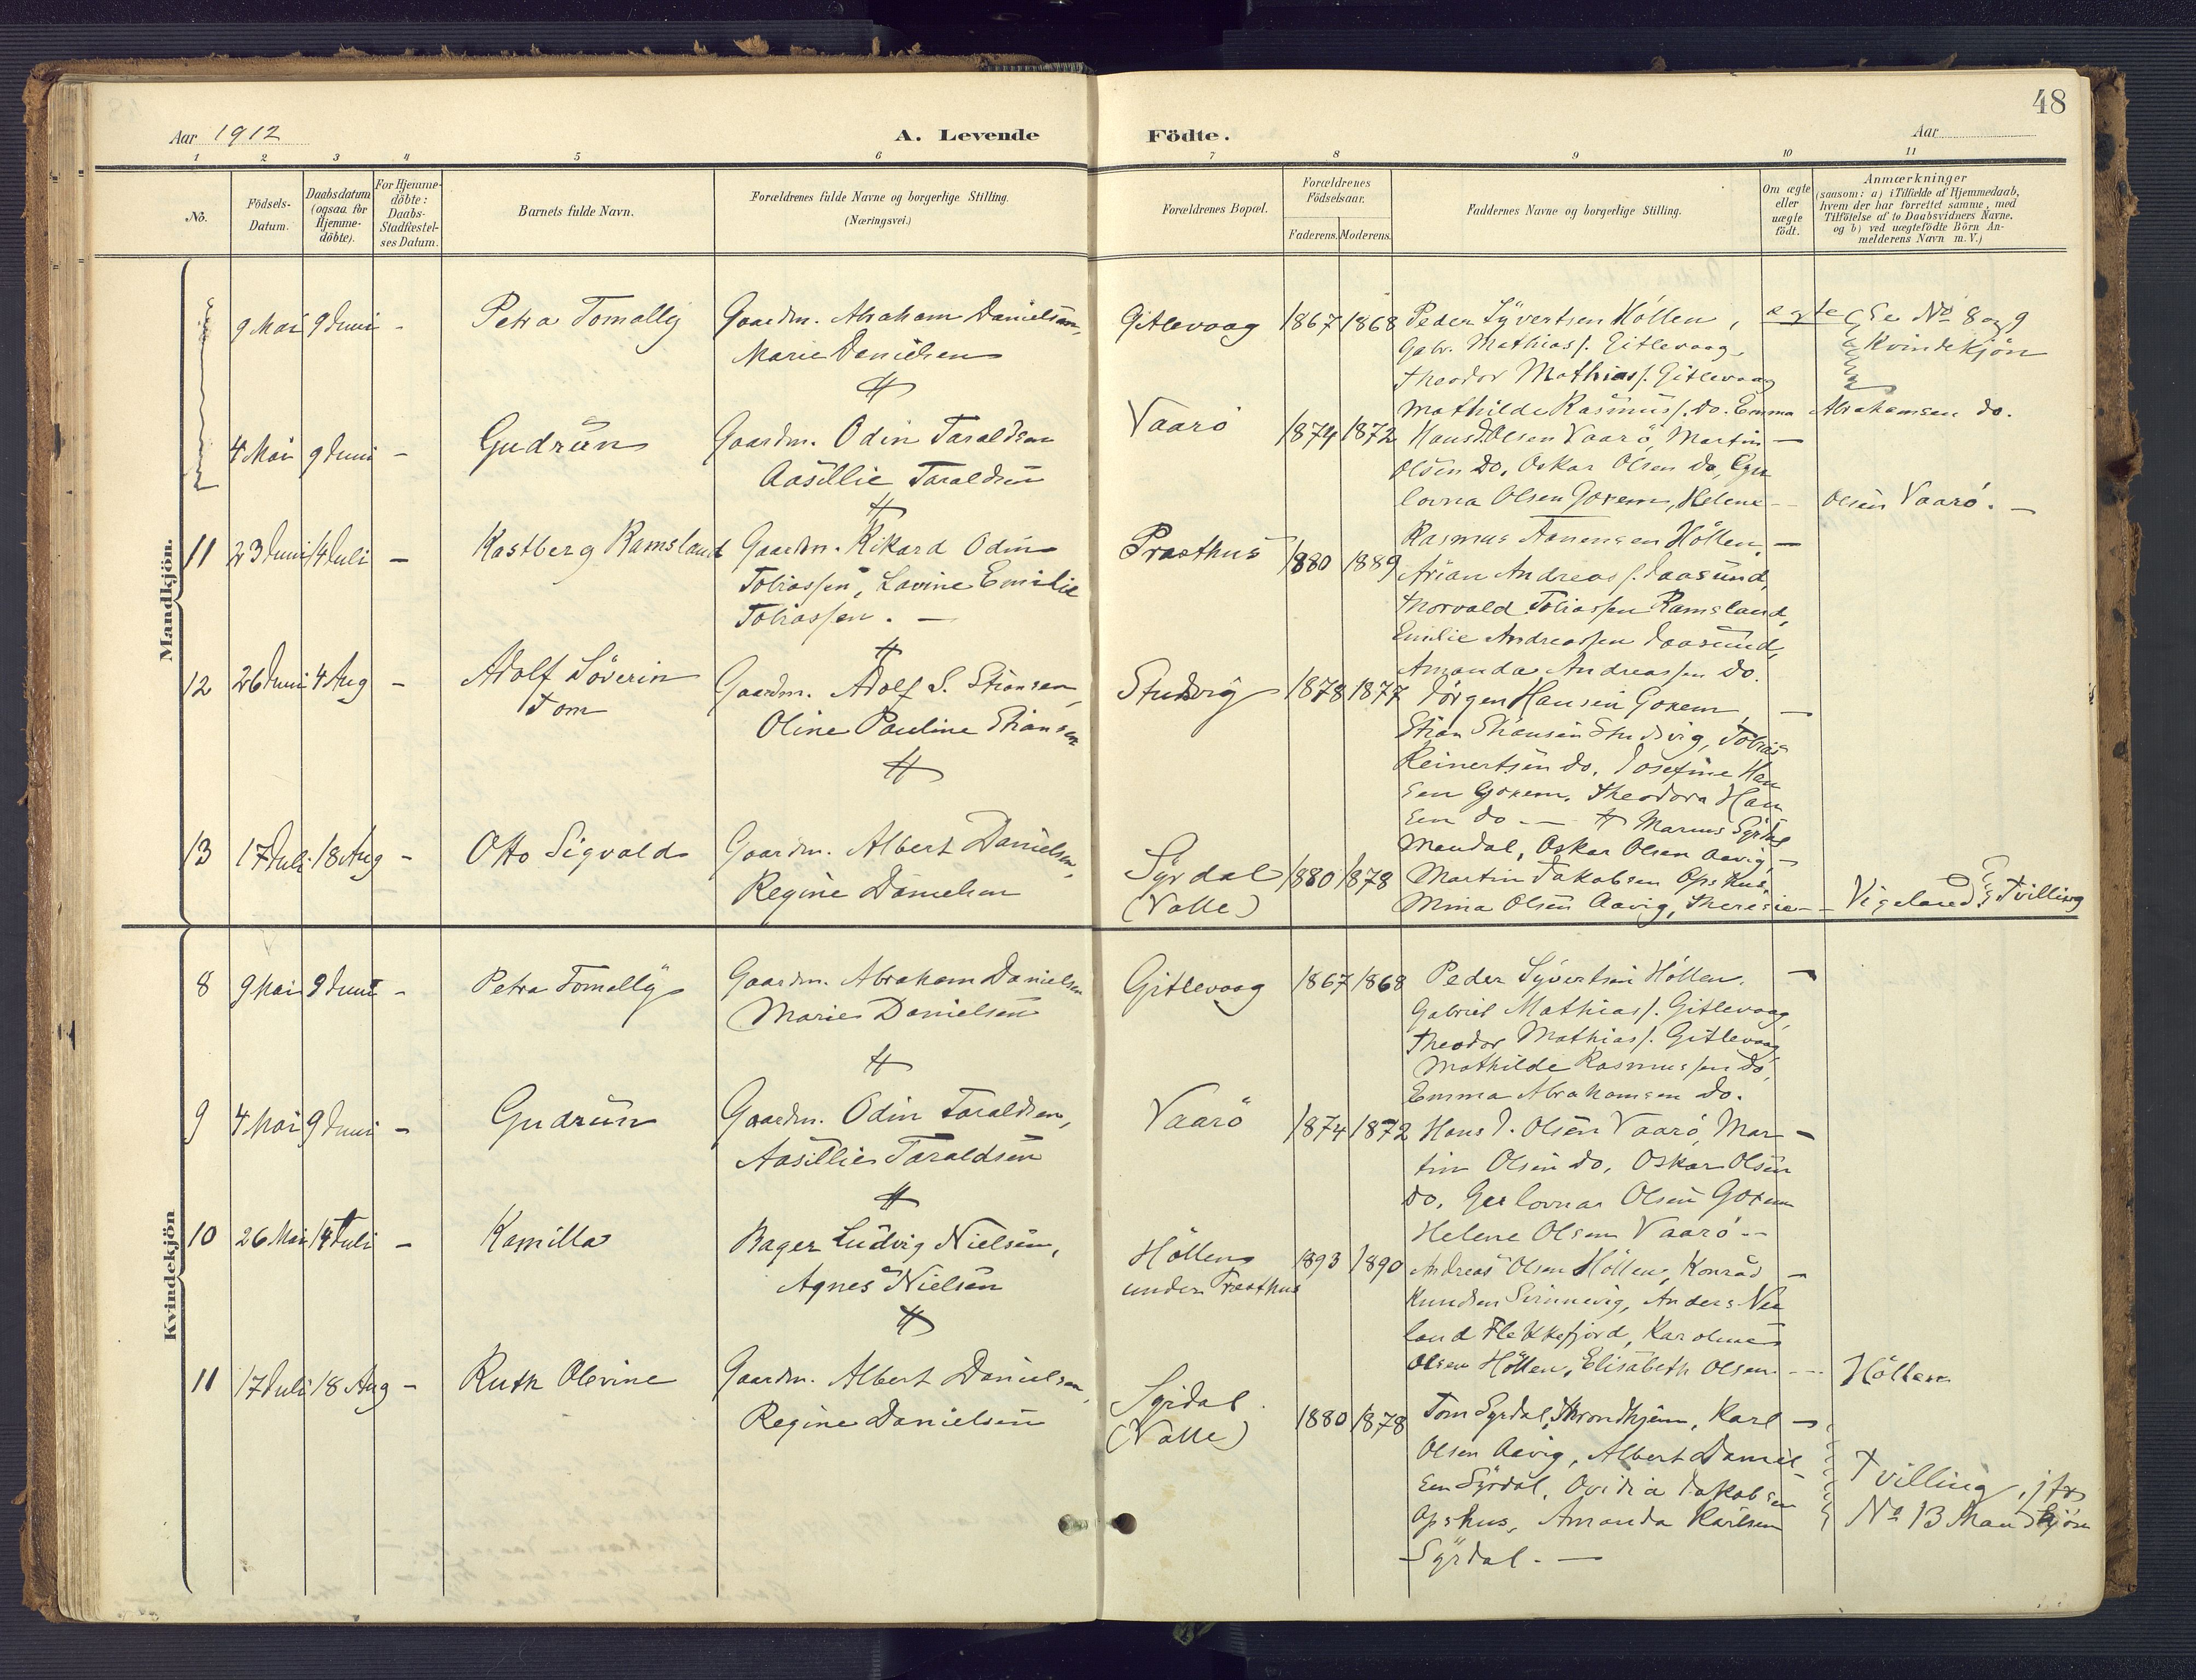 48
Aar 1912
A. Levende
Födte.
Aar
1 2 3 4 5 6 7 8 9 10 11
No.
Födsels-
Datum.
Daabsdatum
(ogsaa for
Hjemme-
döbte).
For Hjemme-
döbte:
Daabs-
Stadfæstel-
ses Datum.
Barnets fulde Navn.
Forældrenes fulde Navne og borgerlige Stilling.
(Næringsvei.)
Forældrenes Bopæl.
Forældrenes
Födselsaar.
Faderens. Moderens.
Faddernes Navne og borgerlige Stilling.
Om ægte
eller
uægte
födt.
Anmærkninger
(saasom: a) i Tilfælde af Hjemmedaab,
hvem der har forrettet samme, med
Tilföielse af to Daabsvidners Navne.
og b) ved uægtefödte Börn An-
melderens Navn m. V.)
Mandkjön.
9 Mai 9 Juni - Petra Tomally Gaardm. Abraham Danielsen,
Marie Danielsen
Gitlevaag 1867 1868 Peder Syvertsen Höllen, ægte Se No 8 og 9
Gabr. Mathiass. Gitlevaag, Kvindekjön
Theodor Mathiass. Gitlevaag
Mathilde Rasmuss. do. Emma Abrahamsen do.
4 Mai 9 Juni - Gudrun Gaardm. Odin Taraldsen
Aasillie Taraldsen
Vaarö 1874 1872 Hans J. Olsen Vaarö, Martin -
Olsen do, Oskar Olsen do,
lovna Olsen Goxem, Helene - Olsen Vaarö. -
11 23 Juni 14 Juli - Kastberg Ramsland Gaardm. Rikard Odin
Tobiassen, Lavine Emilie
Tobiassen. -
Præsthus 1880 1889 Rasmus Aanensen Höllen, -
Arian Andreass. Jaasund,
Thorvald Tobiassen Ramsland,
Emilie Andreassen Jaasund,
Amanda Andreassen do.
12 26 Juni 4 Aug - Adolf Söverin
Tom
Gaardm. Adolf S. Stiansen,
Oline Pauline Stiansen
Studvig 1878 1877 Jörgen Hansen Goxem, -
Stian Stiansen Studvig, Tobias
Reinertsen do. Josefine Han
sen Goxem. Theodora Han
sen do -
13 17 Juli 18 Aug - Otto Sigvald Gaardm. Albert Danielsen,
Regine Danielsen
Syrdal
(Valle)
1880 1878 Marius Syrdal
Mandal, Oskar Olsen Aavig, -
Martin Jakobsen Opshus,
Mina Olsen Aavig, Theresie - Vigeland Tvilling
Kvindekjön
8 9 Mai 9 Juni - Petra Tomally Gaardm. Abraham Danielsen
Marie Danielsen
Gitlevaag 1867 1868 Peder Syvertsen Höllen. -
Gabriel Mathiass. Gitlevaag,
Theodor Mathiass. Gitlevaag
Mathilde Rasmussen do,
Emma Abrahamsen do.
9 4 Mai 9 Juni - Gudrun Gaardm. Odin Taraldsen,
Aasillie Taraldsen
Vaarö 1874 1872 Hans J. Olsen Vaarö, Mar -
tin Olsen do, Oskar Olsen
do, Gunlovna Olsen Goxem
Helene Olsen Vaarö -
10 26 Mai 14 Juli - Kamilla Bager Ludvig Nielsen,
Agnes Nielsen
Höllen
under Præsthus
1893 1890 Andreas Olsen Höllen, Konrad -
Knudsen Svinnevig, Anders
land Flekkefjord, Karoline
Olsen Höllen, Elisabeth Olsen - Höllen
11 17 Juli 18 Aug - Ruth Olevine Gaardm. Albert Danielsen,
Regine Danielsen
Syrdal.
(Valle)
1880 1878 Tom Syrdal, Throndhjem, Karl -
Olsen Aavig, Albert Daniel-
sen Syrdal, Ovidia Jakobsen
Opshus, Amanda Karlsen
Syrdal. -
Tvilling, jfr
No 13 Mandkjön